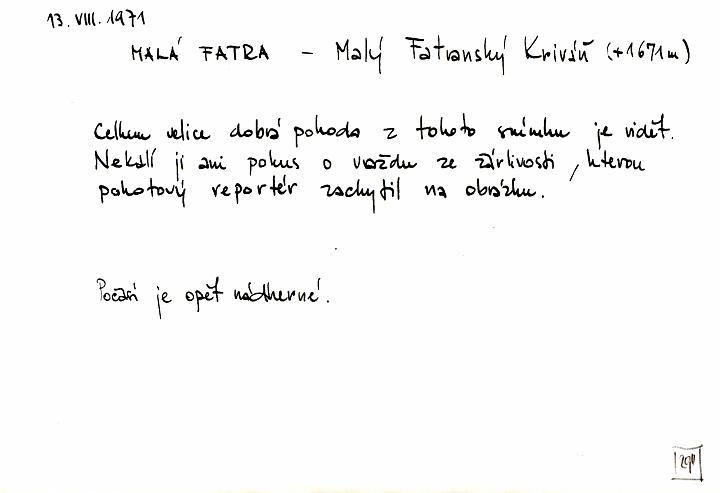 13. VIII. 1971
MALÁ FATRA – Malý Fatranský Kriváň (+1671m)
Celkem velice dobrá pohoda z tohoto snímku je vidět.
Nekalí ji ani pokus o vraždu ze žárlivosti, kterou
pohotový reportér zachytil na obrázku.
Počasí je opět nádherné.